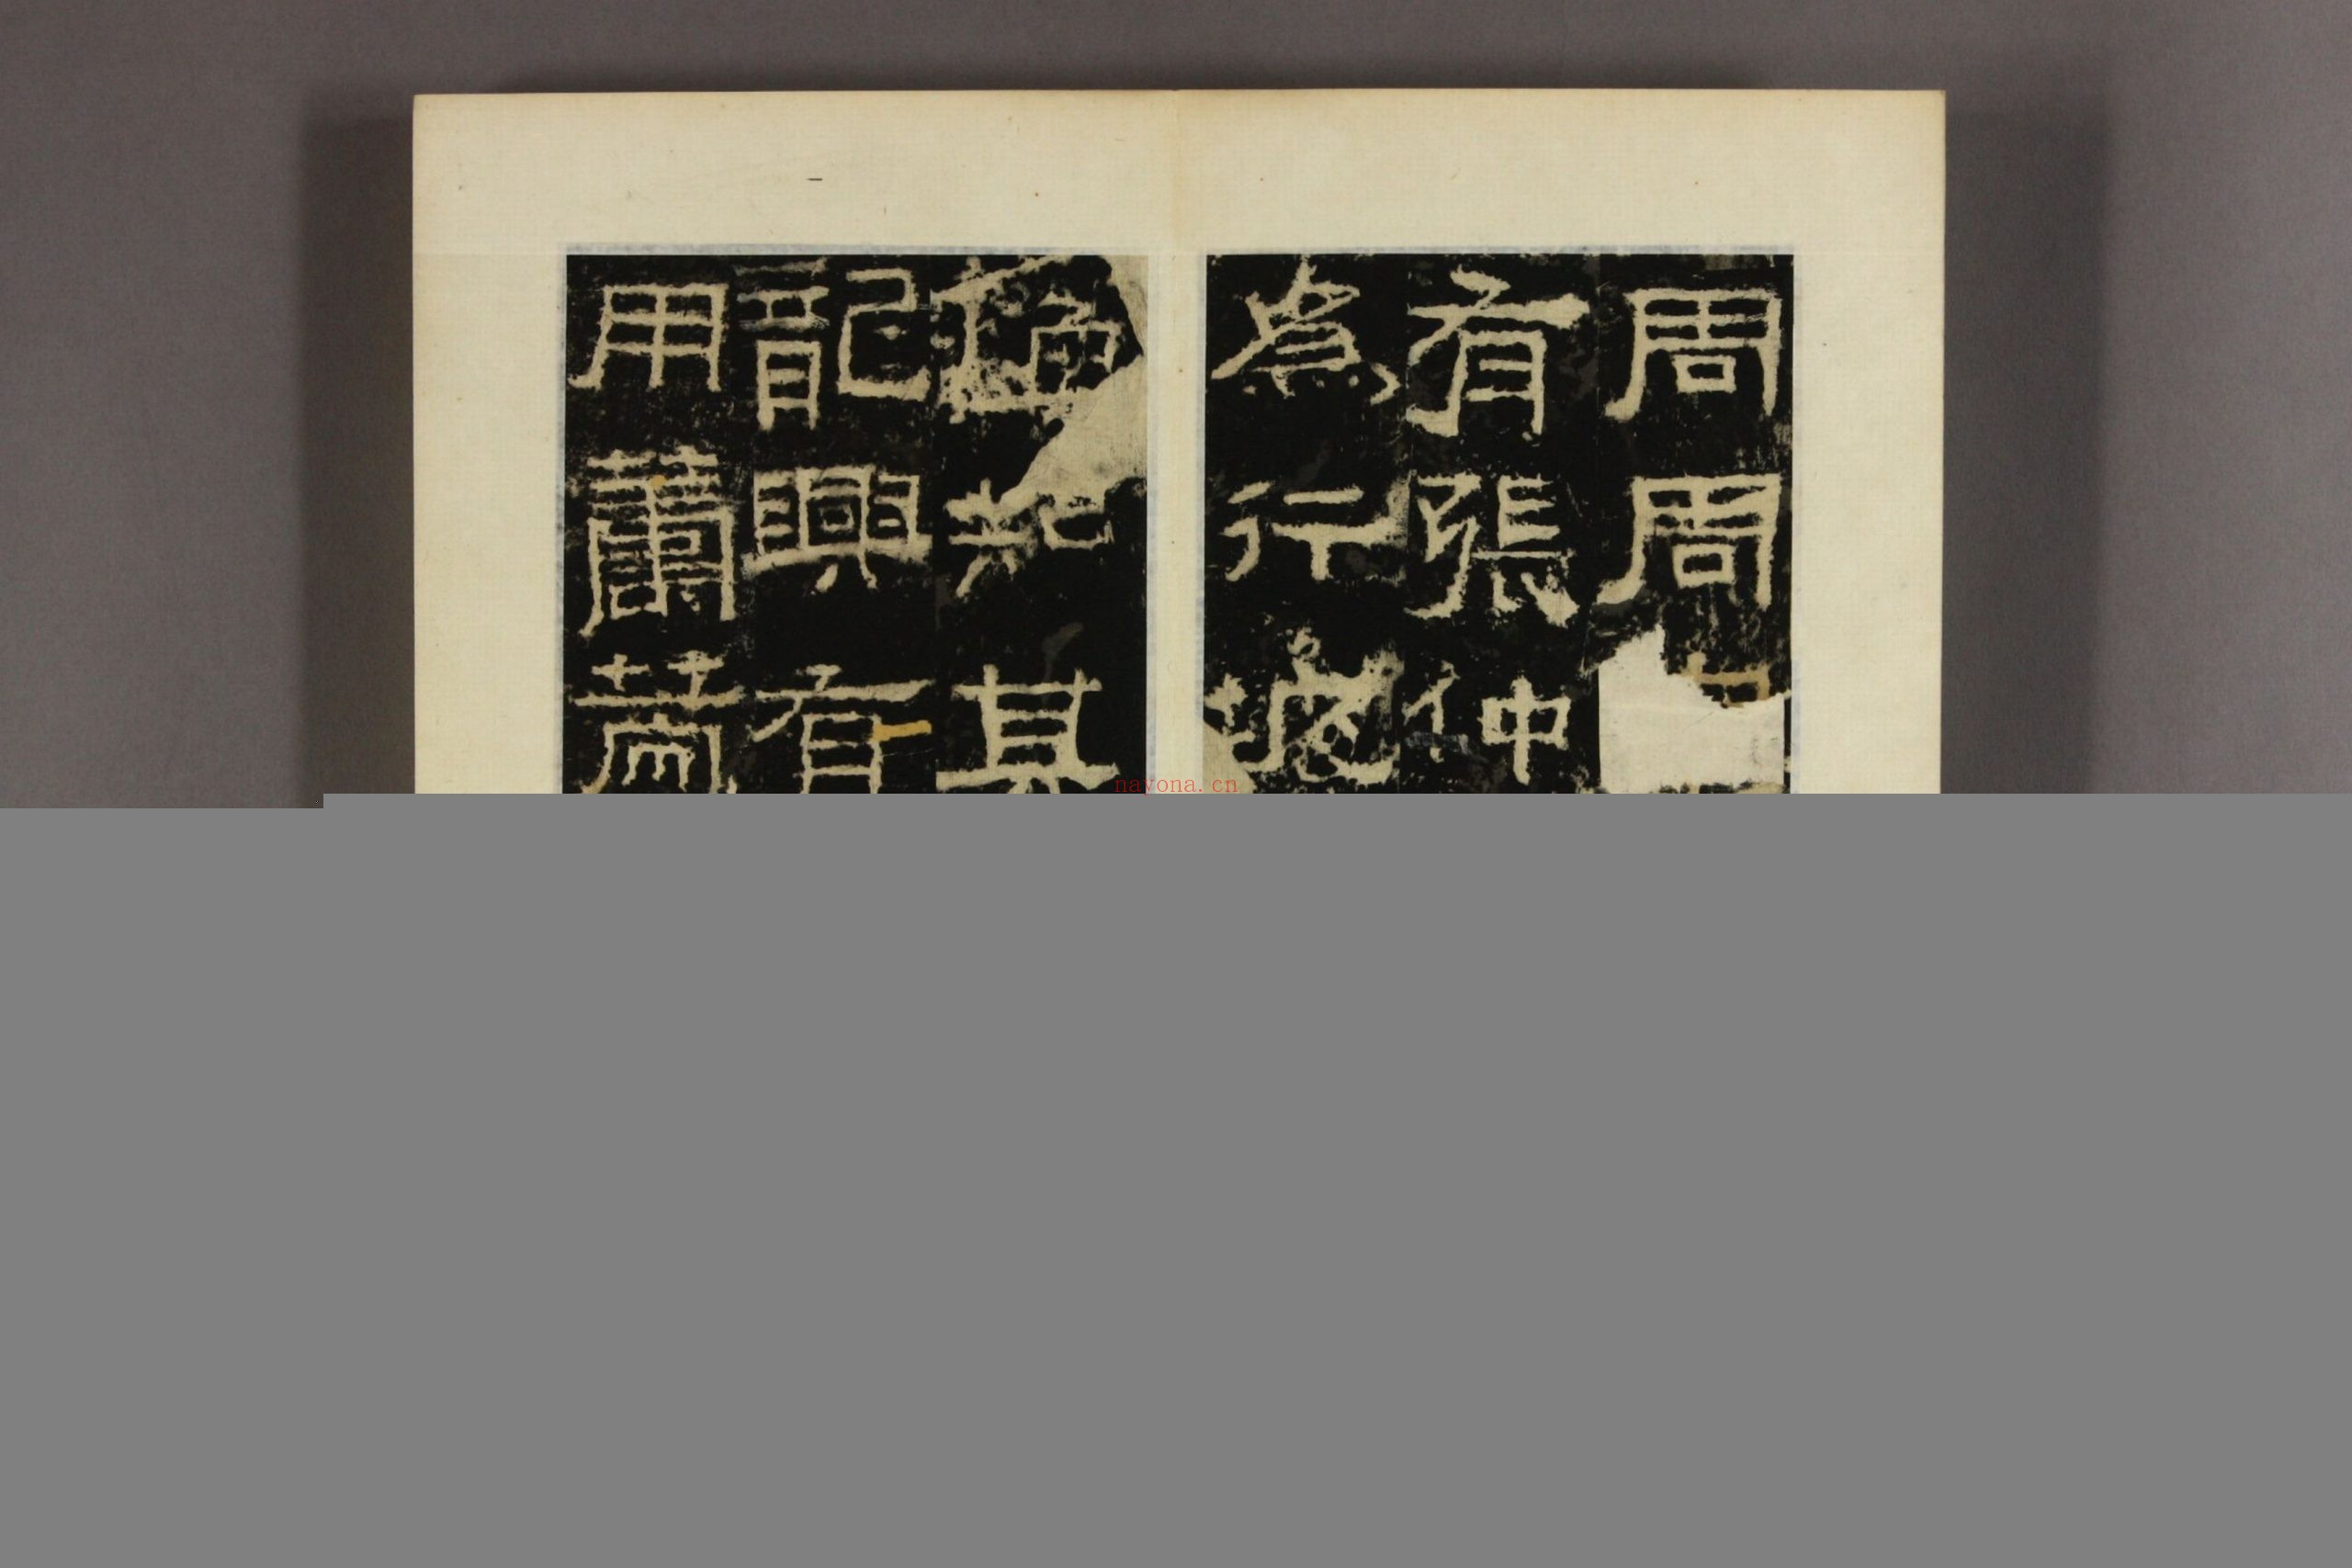 周周
有張仲
為行披
知其
龍興有
用籌策
nayona.cn